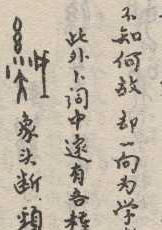 不知何故却一向为学
此外卜词中还有各种
象头断颈